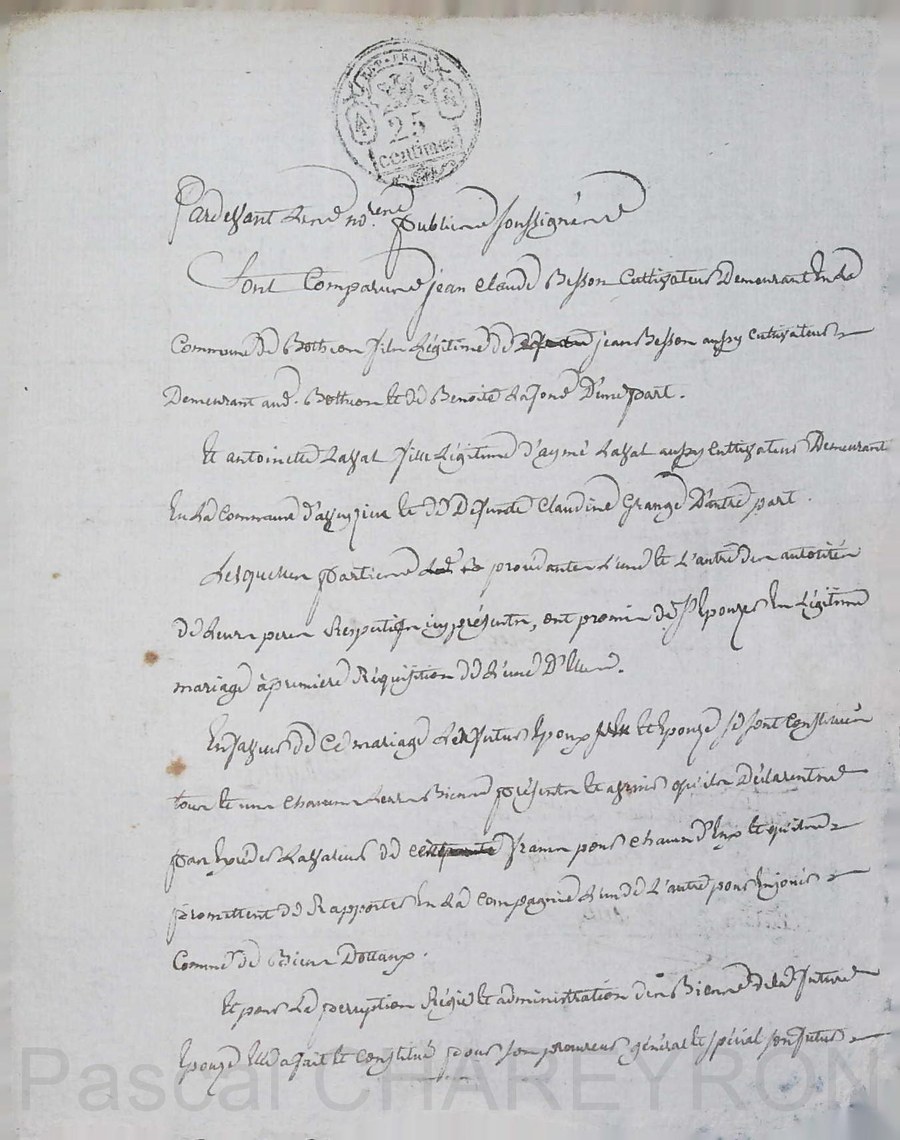 REP. FRA.
25
centimes
Pardevant Les no.res publics soussignés
Sont Comparus jean Claude Besson Cultivateur Demeurant En la
Commune de Bothion fils Légitime de jean Besson aussy Cultivateur
Demeurant aud. Bothion et de Benoite Lafond D'une part.
Et antoinette Laval fille Légitime d'aymé Laval aussy Cultivateur Demeurant
En la Commune d'aveyzieu et de Defunte Claudine Grange D'autre part.
Lesquelles parties procédantes L'une et L'autre des autorités
de Leurs peres Respectifs icy présents, ont promis de S'Epouzer En Légitime
mariage à premiere Réquisition de L'une D'Elles.
En faveur de Ce mariage Les futurs Epoux et Epouze se sont Constitués
tous et uns chacuns Leurs Biens présents et avenir qu'ils Déclarent ne
pas Exceder La valeur de francs pour chacun d'Eux et qu'ils
promettent de Rapporter En La Compagnie L'un de L'autre pour En jouir
Comme de Biens Dotaux.
Et pour La perception Régie et administration des Biens de la future
Epouze Elle a fait et Constitué pour son procureur général et spécial son futur
Pascal CHAREYRON